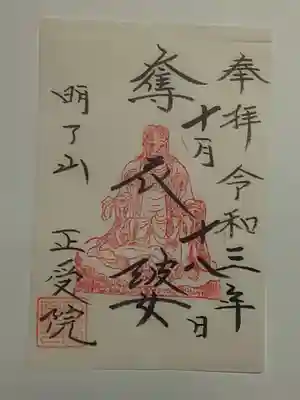 奉拝 令和三年
十月十八日
奪衣婆
明了山 正受院